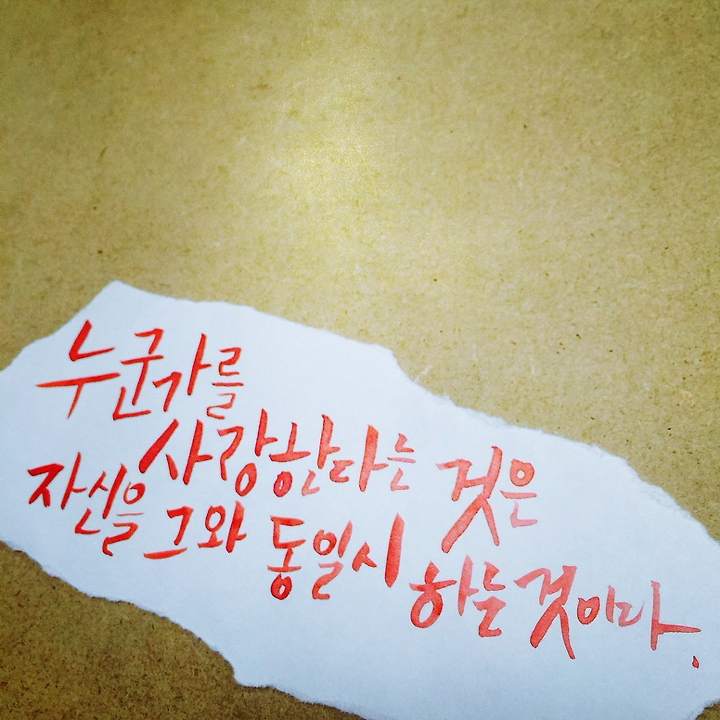 누군가를
사랑한다는 것은
자신을 그와 동일시
하는 것이다.